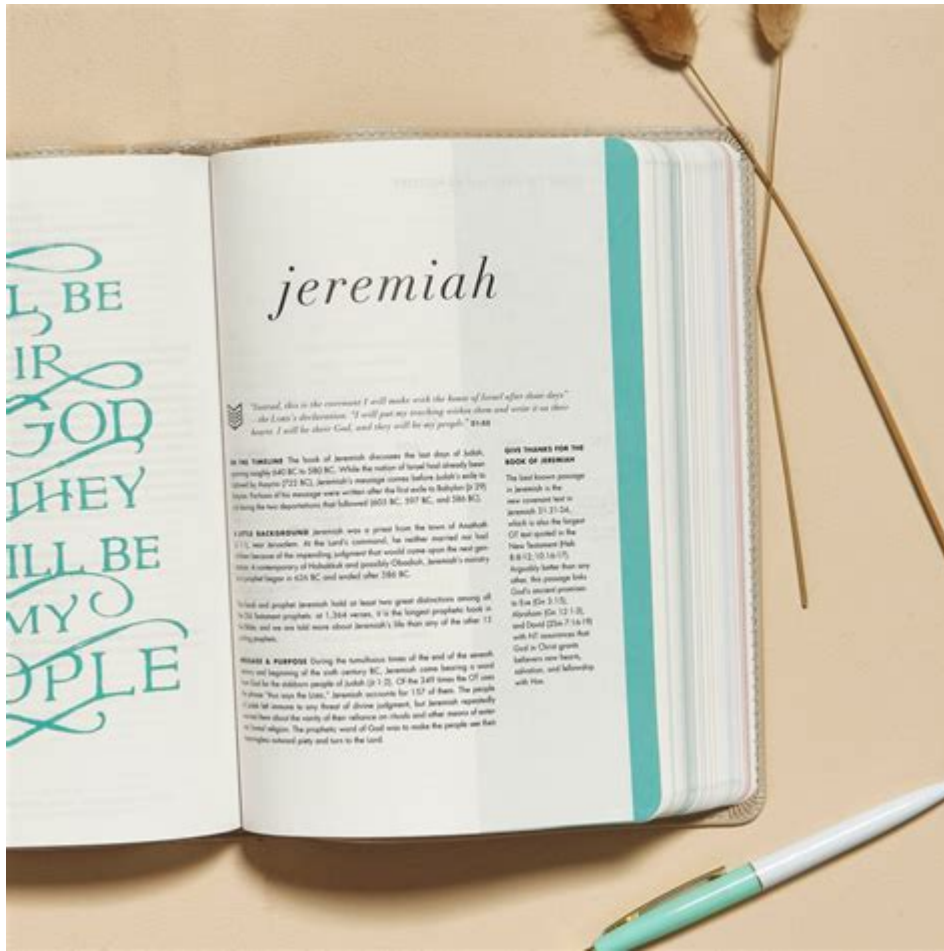 LL BE
IR
GOD
THEY
ILL BE
MY
OPLE
jeremiah
"Instead, this is the covenant I will make with the house of Israel after those days"
—the LORD's declaration. "I will put my teaching within them and write it on their
hearts. I will be their God, and they will be my people." 31:33
ON THE TIMELINE The book of Jeremiah discusses the last days of Judah,
roughly 640 BC to 580 BC. While the nation of Israel had already been
by Assyria (722 BC), Jeremiah's message comes before Judah's exile to
Portions of his message were written after the first exile to Babylon (Jr 29)
during the two deportations that followed (605 BC, 597 BC, and 586 BC).
A LITTLE BACKGROUND Jeremiah was a priest from the town of Anathoth
near Jerusalem. At the Lord's command, he neither married nor had
because of the impending judgment that would come upon the next gen-
A contemporary of Habakkuk and possibly Obadiah, Jeremiah's ministry
prophet began in 626 BC and ended after 586 BC.
book and prophet Jeremiah hold at least two great distinctions among all
Old Testament prophets: at 1,364 verses, it is the longest prophetic book in
and we are told more about Jeremiah's life than any of the other 15
prophets.
MESSAGE & PURPOSE During the tumultuous times of the end of the seventh
and beginning of the sixth century BC, Jeremiah came bearing a word
God for the stubborn people of Judah (Jr 1:2). Of the 349 times the OT uses
phrase "thus says the LORD," Jeremiah accounts for 157 of them. The people
felt immune to any threat of divine judgment, but Jeremiah repeatedly
them about the vanity of their reliance on rituals and other means of exter-
formal religion. The prophetic word of God was to make the people see their
meaningless outward piety and turn to the Lord.
GIVE THANKS FOR THE
BOOK OF JEREMIAH
The best known passage
in Jeremiah is the
new covenant text in
Jeremiah 31:31-34,
which is also the largest
OT text quoted in the
New Testament (Heb
8:8-12; 10:16-17).
Arguably better than any
other, this passage links
God's ancient promises
to Eve (Gn 3:15),
Abraham (Gn 12:1-3),
and David (2Sm 7:16-19)
with NT assurances that
God in Christ grants
believers new hearts,
salvation, and fellowship
with Him.